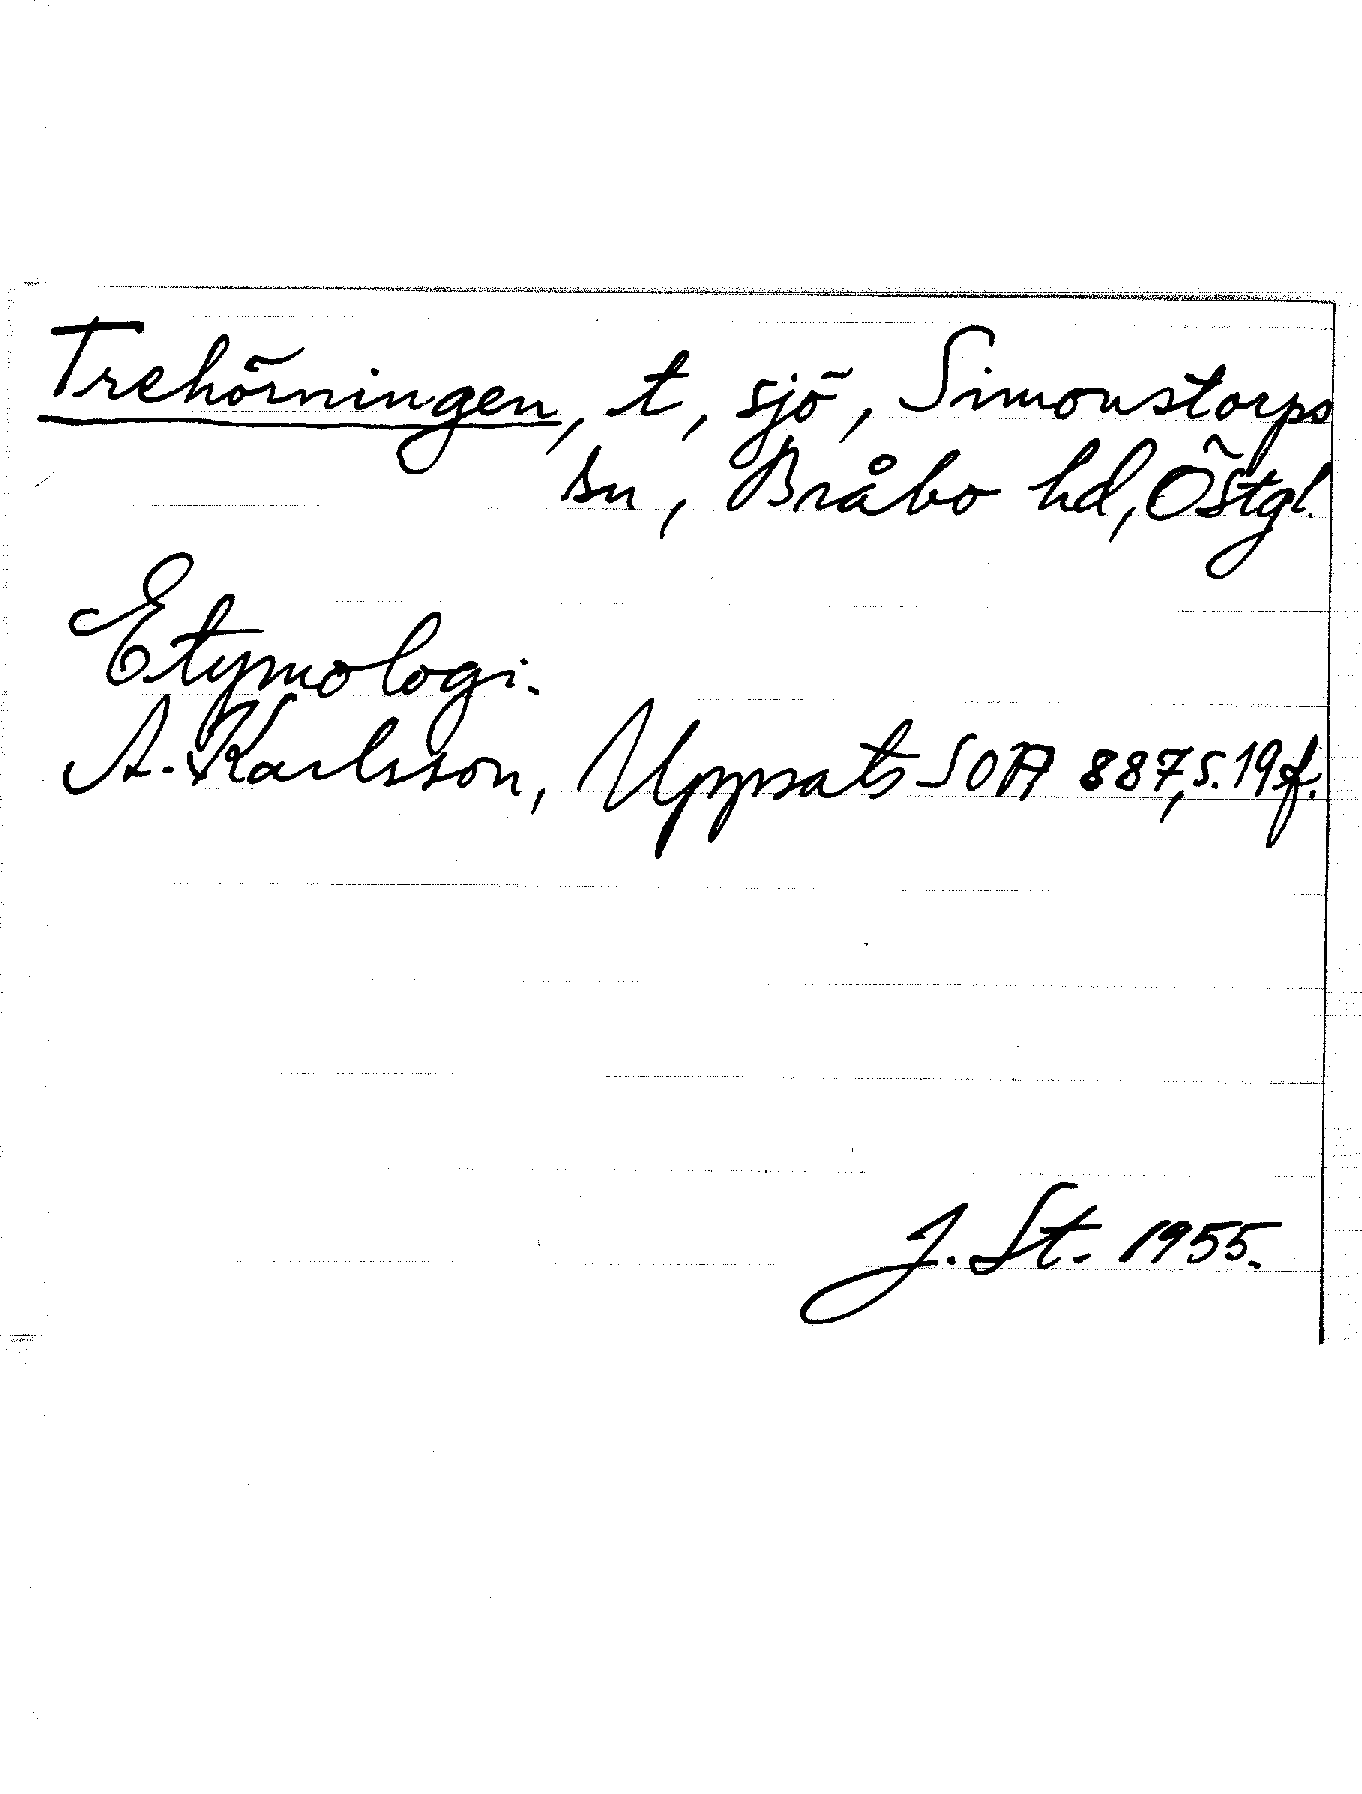 Trehörningen, t, sjö, Simonstorps
sn, Bråbo hd, Östgl.
Etymologi.
A. Karlsson, Uppsats SOA 887, s. 19 f.
J. St. 1955.